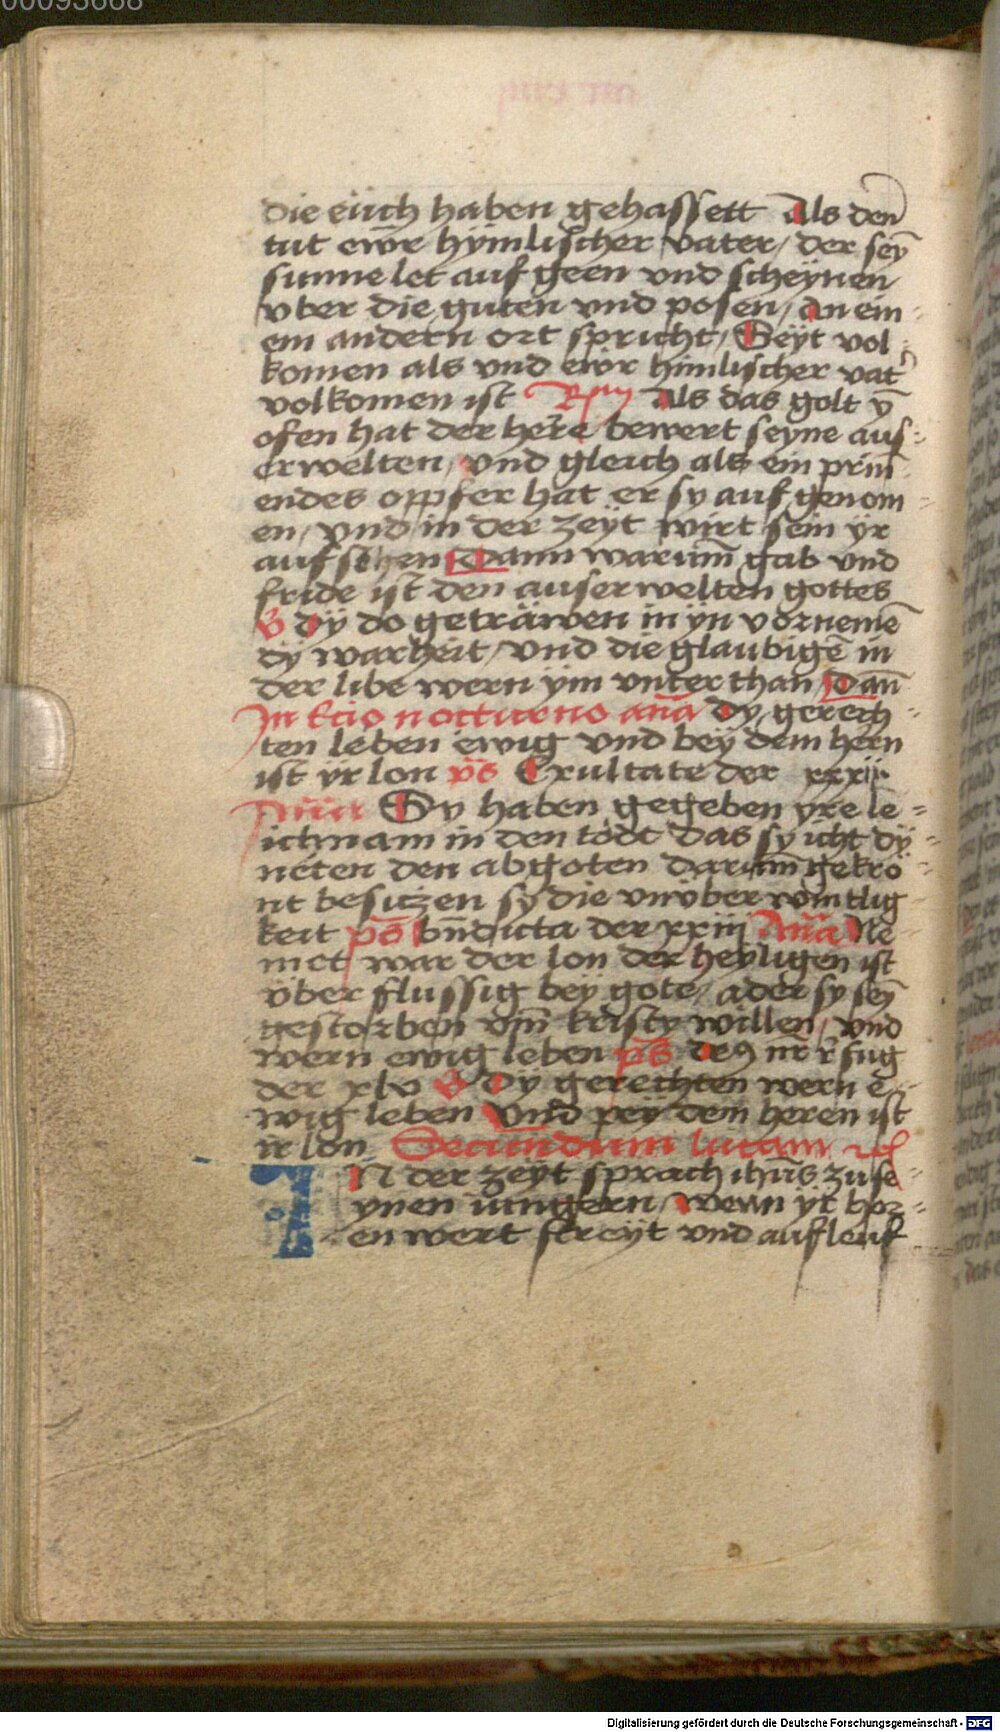 00093668
die eüch haben gehassett Als den̄
tut ewr̄e hÿmlischer vater / der seȳ
sunne let auf geen vnd scheÿnen
vber die guten vnd posen / an ein⸗
em andern ort spricht / Seÿt vol⸗
komen als vnd ewr himlischer vat̉
volkomen ist Als das golt ȳ
ofen hat der herre bewert seyne aus⸗
erwelten / vnd gleich als ein prin̄⸗
endes opfer hat er sy auf genom⸗
en / vnd in der zeÿt wirt sein yr
aufsehen Dann warum̄ gab vnd
fride ist den auserwelten gottes
V dÿ do geträwen in ÿn vornemē
dÿ warheit / vnd die glaubigē in
der libe wern ÿm vnterthan / Dan̄
In tcio nocturno an̄a Dy gerech⸗
ten leben ewig vnd beÿ dem hern
ist ÿr lon ps̄ Exultate der xxxij
An̄a Sy haben gegeben yre le⸗
ichnam in den tödt das sy icht dÿ⸗
neten den abgoten darum̄ gekrö⸗
nt besitzen sy die vnüberwintlig⸗
keit ps̄ bn̄dicta der xxiij An̄a Ne⸗
met war der lon der heÿligen ist
über flussig beÿ gote / ader sy seȳ
gestorben vm̄ kristy willen / vnd
wern ewig leben ps̄ de9 nr̄ r̄fug
der xlv V Dÿ gerechten wern e⸗
wig leben Vnd peÿ dem heren ist
ir lon Secundum lucam
IN der zeÿt sprach ihūs zu se⸗
ynen iungern / Wenn yr hor⸗
en wert streÿt vnd aufleuf
Digitalisierung gefördert durch die Deutsche Forschungsgemeinschaft - DFG